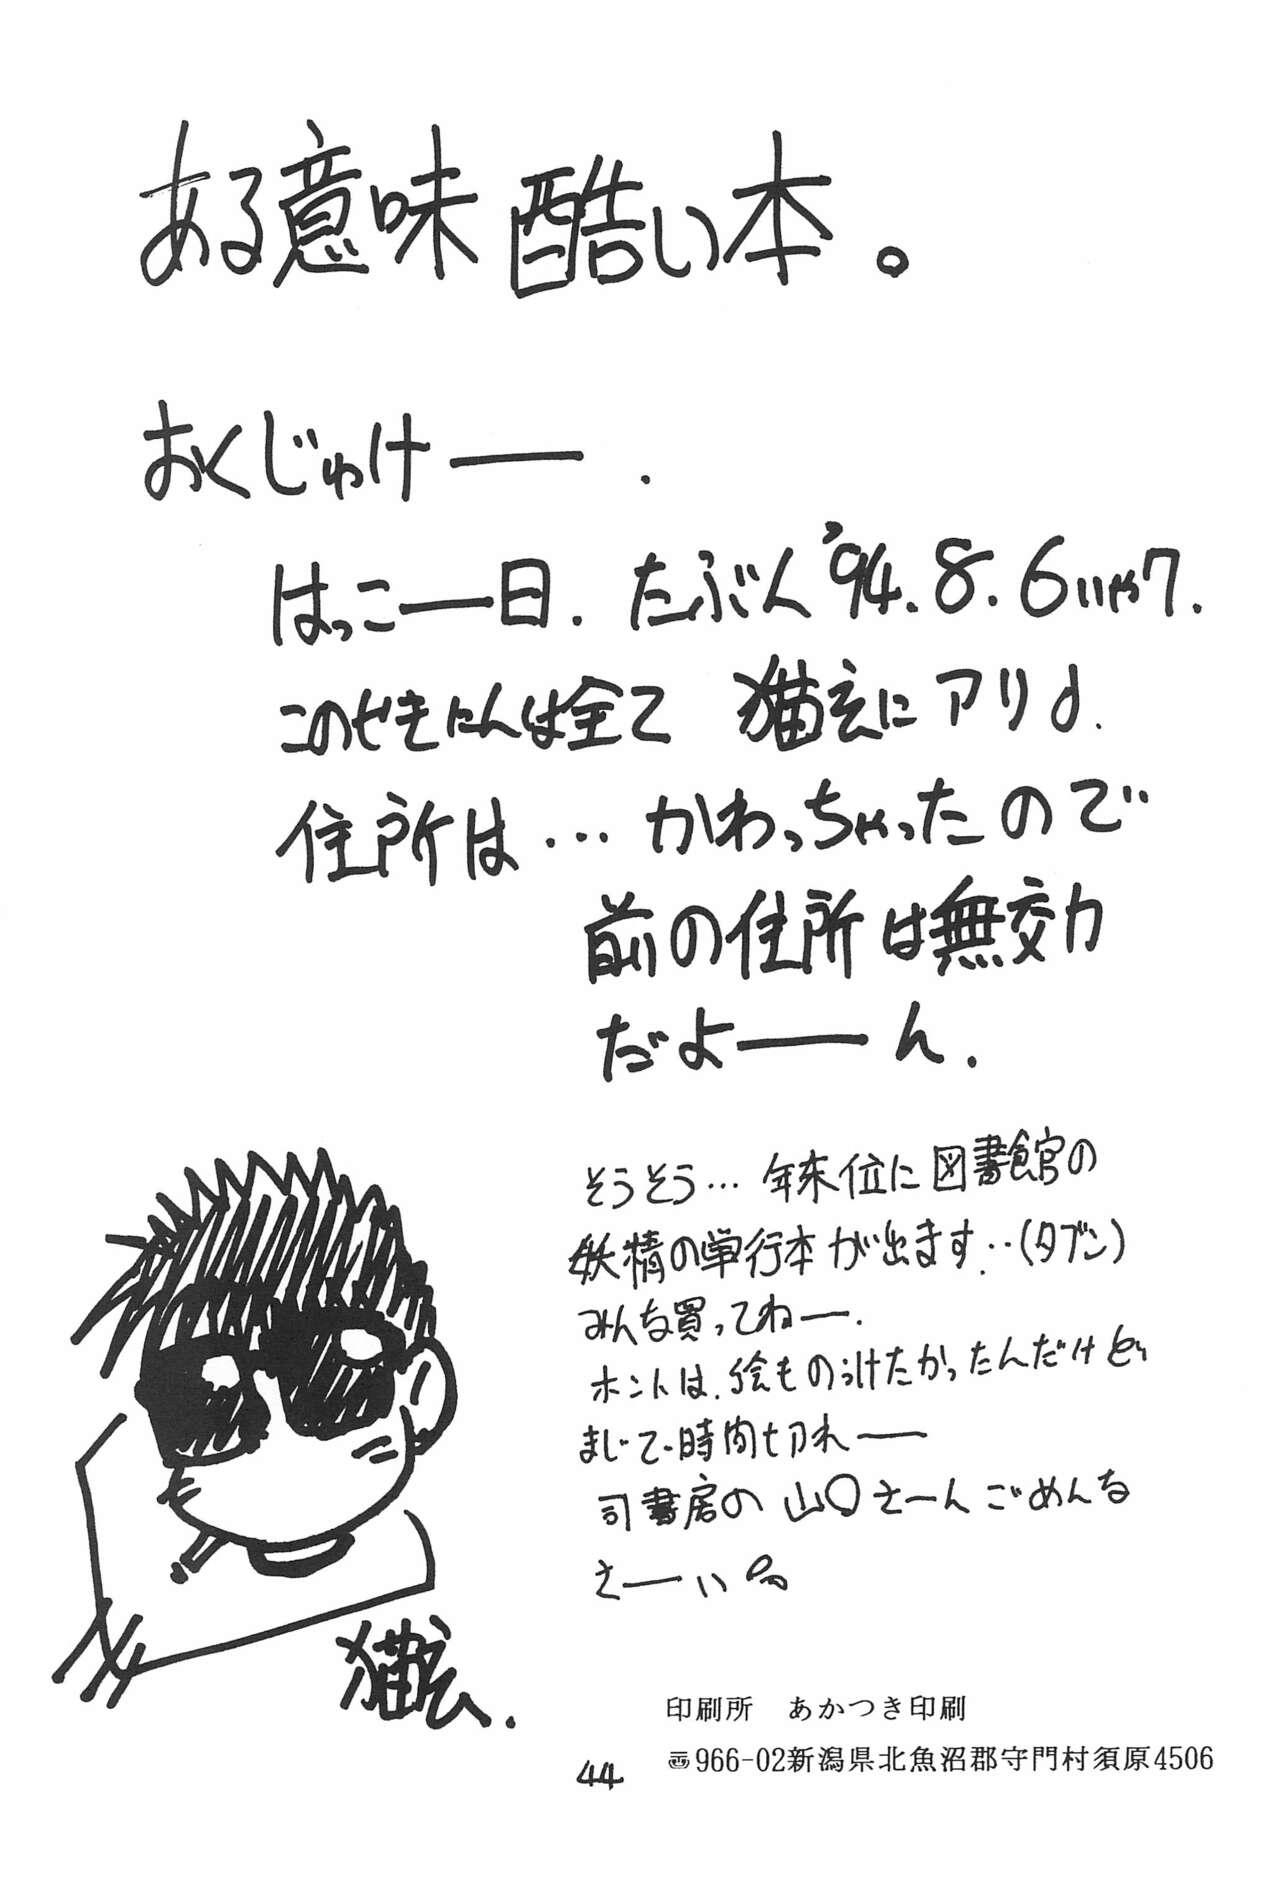 ある意味酷い本。
おくじゅけー.
はっこー日.たぶん'94.8.6いや7.
このせきにんは全て 猫玄にアリ♪.
住所は…かわっちゃったので
前の住所は無効
だよーん.
そうそう…年末位に図書館の
妖精の単行本が出ます‥(タブン)
みんな買ってねー.
ホントは、絵もの
たかったんだけど
まじで時間切れー
司書房の山〇さーんごめんな
さーい
猫玄.
印刷所 あかつき印刷
966-02新潟県北魚沼郡守門村須原4506
44